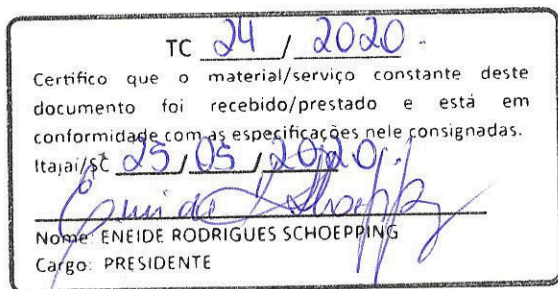 TC 24 / 2020.
Certifico que o material/serviço constante deste
documento foi recebido/prestado e está em
conformidade com as especificações nele consignadas.
Itajaí/SC 25/05/2020
Nome: ENEIDE RODRIGUES SCHOEPPING
Cargo: PRESIDENTE